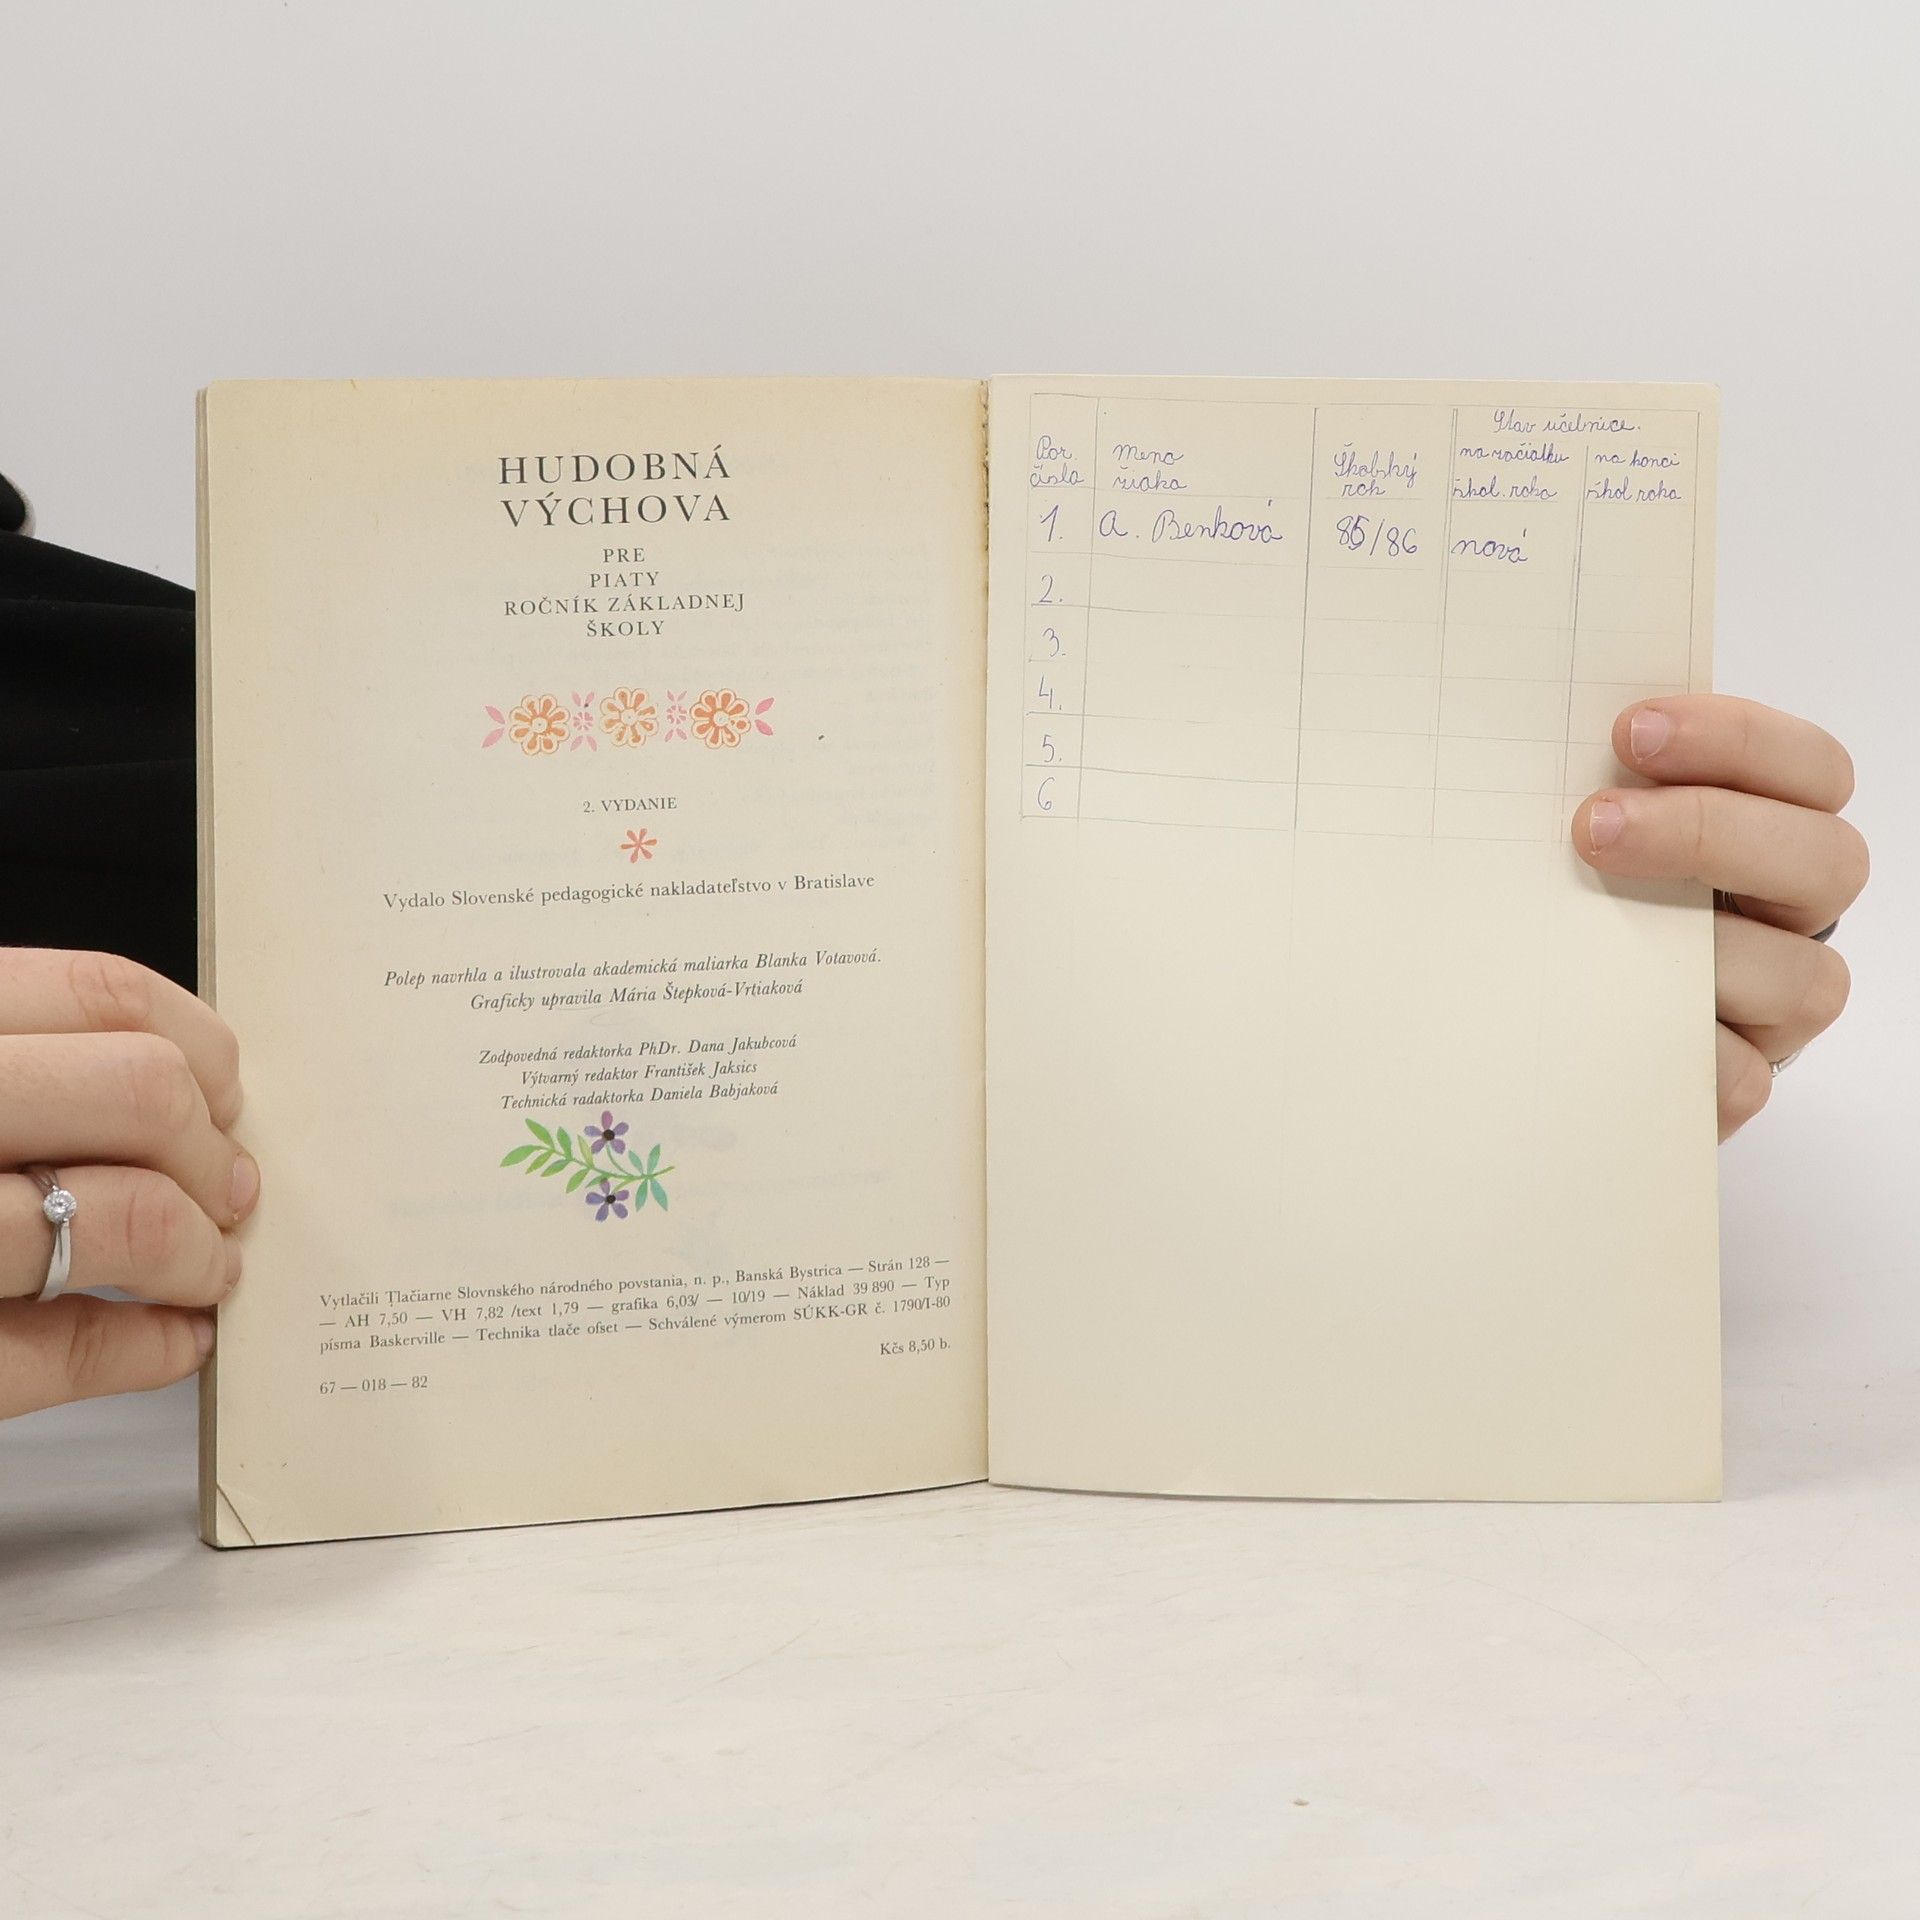 HUDOBNÁ
VÝCHOVA
PRE
PIATY
ROČNÍK ZÁKLADNEJ
ŠKOLY
2. VYDANIE
Vydalo Slovenské pedagogické nakladateľstvo v Bratislave
Polep navrhla a ilustrovala akademická maliarka Blanka Votavová.
Graficky upravila Mária Štepková-Vrtiaková
Zodpovedná redaktorka PhDr. Dana Jakubcová
Výtvarný redaktor František Jaksics
Technická radaktorka Daniela Babjaková
Vytlačili Tlačiarne Slovnského národného povstania, n. p., Banská Bystrica — Strán 128 —
— AH 7,50 — VH 7,82 /text 1,79 — grafika 6,03/ — 10/19 — Náklad 39 890 — Typ
písma Baskerville — Technika tlače ofset — Schválené výmerom SÚKK-GR č. 1790/I-80
Kčs 8,50 b.
67 — 018 — 82
Stav učebnice.
Por. Meno Školský na začiatku na konci
čísla žiaka rok škol. roka škol roka
1. A. Benková 85/86 nová
2.
3.
4.
5.
6